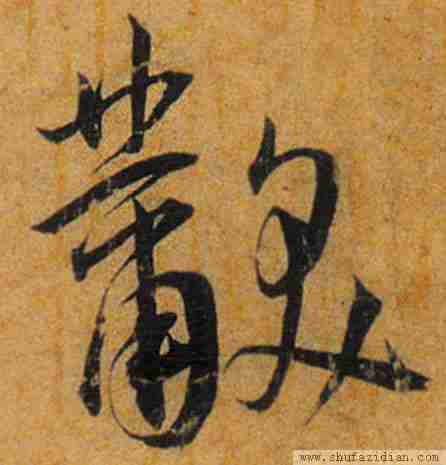 黻
www.shufazidian.com